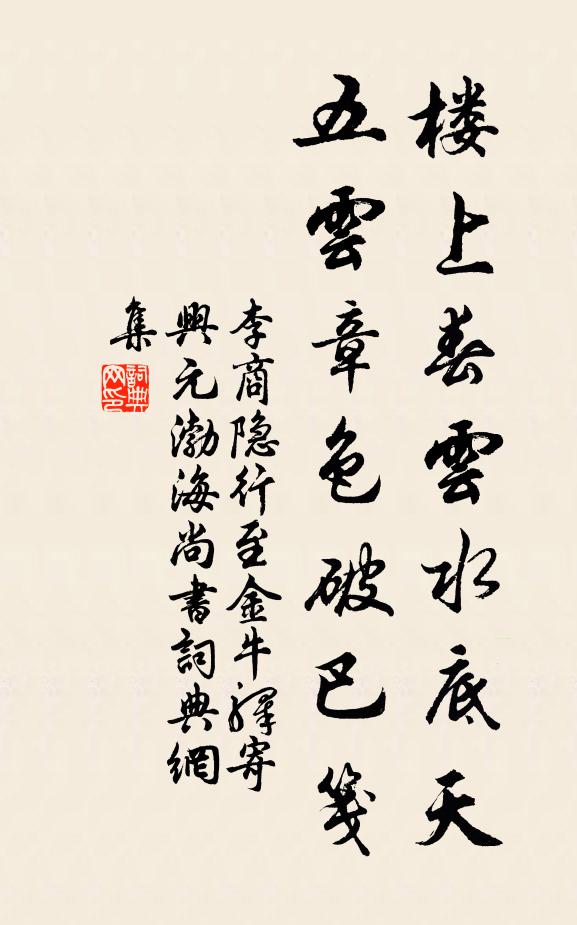 楼上春雲水底天
五雲章色破巴箋
李商隐行至金牛驛寄
興元渤海尚書詞典網
集
詞典
网印